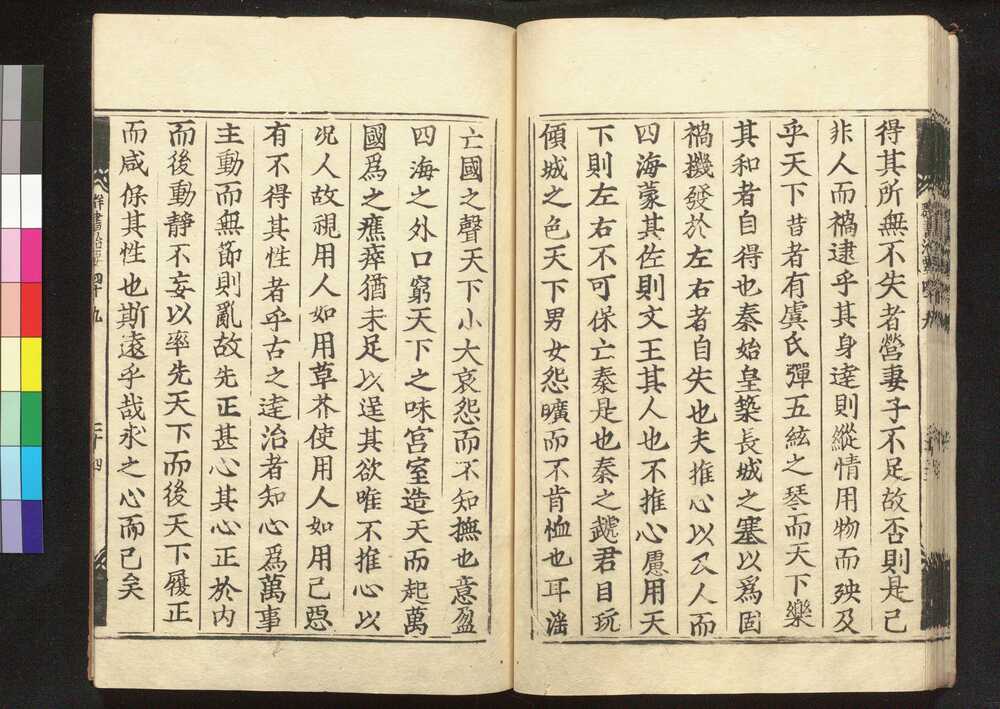 得其所無不失者營妻子不足故否則是己
非人而禍逮乎其身達則縱情用物而殃及
乎天下昔者有虞氏彈五絃之琴而天下樂
其和者自得也秦始皇築長城之塞以爲固
禍機發於左右者自失也夫推心以及人而
四海蒙其佐則文王其人也不推心慮用天
下則左右不可保亡秦是也秦之虣君目玩
傾城之色天下男女怨曠而不肯恤也耳滛
亡國之聲天下小大哀怨而不知撫也意盈
四海之外口窮天下之味宮室造天而起萬
國爲之癄瘁猶未足以逞其欲唯不推心以
况人故視用人如用草芥使用人如用己惡
有不得其性者乎古之達治者知心爲萬事
主動而無節則亂故先正甚心其心正於内
而後動靜不妄以率先天下而後天下履正
而咸保其性也斯遠乎哉求之心而已矣
群書治要四十九
三十四